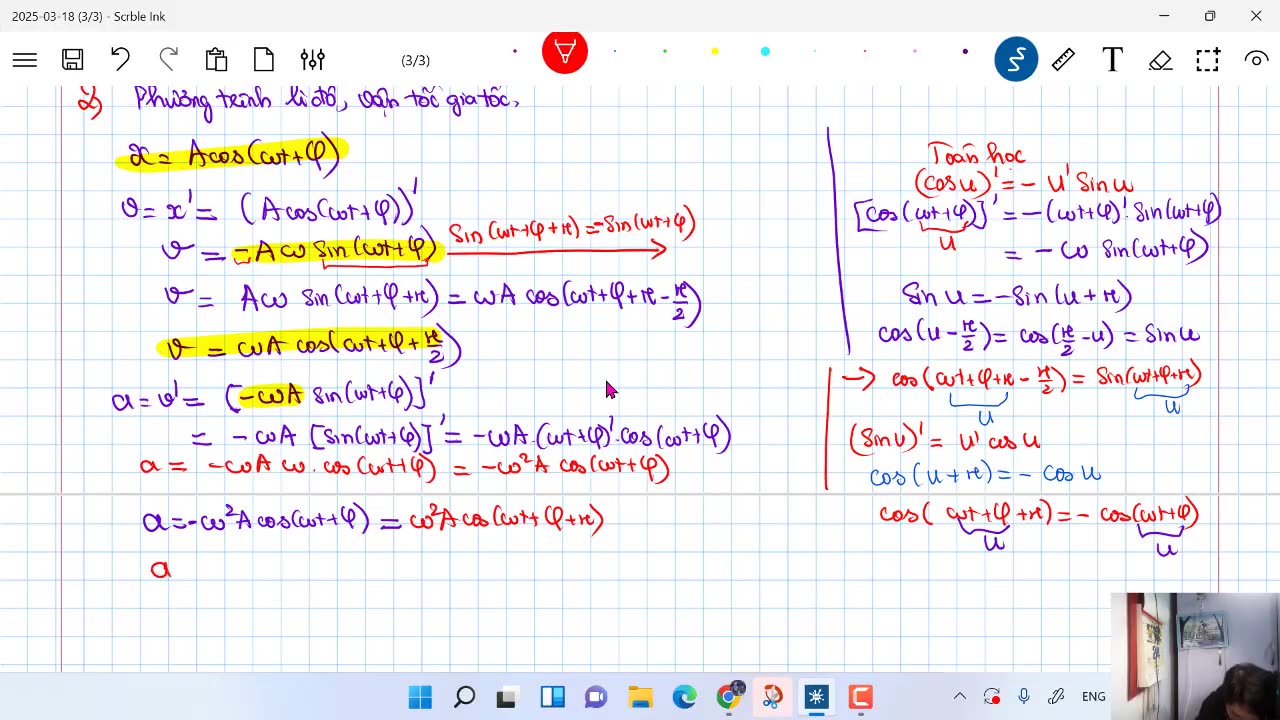 2025-03-18 (3/3) - Scrble Ink
(3/3)
T
2) Phương trình li độ, vận tốc gia tốc.
x = Acos(ωt+φ)
v = x' = (Acos(ωt+φ))'
v = -Aω sin(ωt+φ) Sin(ωt+φ+π) = -Sin(ωt+φ)
v = Aω sin(ωt+φ+π) = ωA cos(ωt+φ+π-π/2)
v = ωA cos(ωt+φ+π/2)
a = v' = [-ωA sin(ωt+φ)]'
= -ωA [sin(ωt+φ)]' = -ωA.(ωt+φ)'.cos(ωt+φ)
a = -ωA ω.cos(ωt+φ) = -ω²A cos(ωt+φ)
a = -ω²A cos(ωt+φ) = ω²A cos(ωt+φ+π)
a
Toán học
(cosu)' = - u' Sinu
[cos(ωt+φ)]' = -(ωt+φ)'.Sin(ωt+φ)
u
= - ω Sin(ωt+φ)
Sin u = -Sin(u+π)
cos(u-π/2) = cos(π/2-u) = Sinu
→ cos(ωt+φ+π-π/2) = Sin(ωt+φ+π)
u u
(Sinu)' = u' cos u
cos(u+π) = - cos u
cos(ωt+φ+π) = - cos(ωt+φ)
u u
ENG